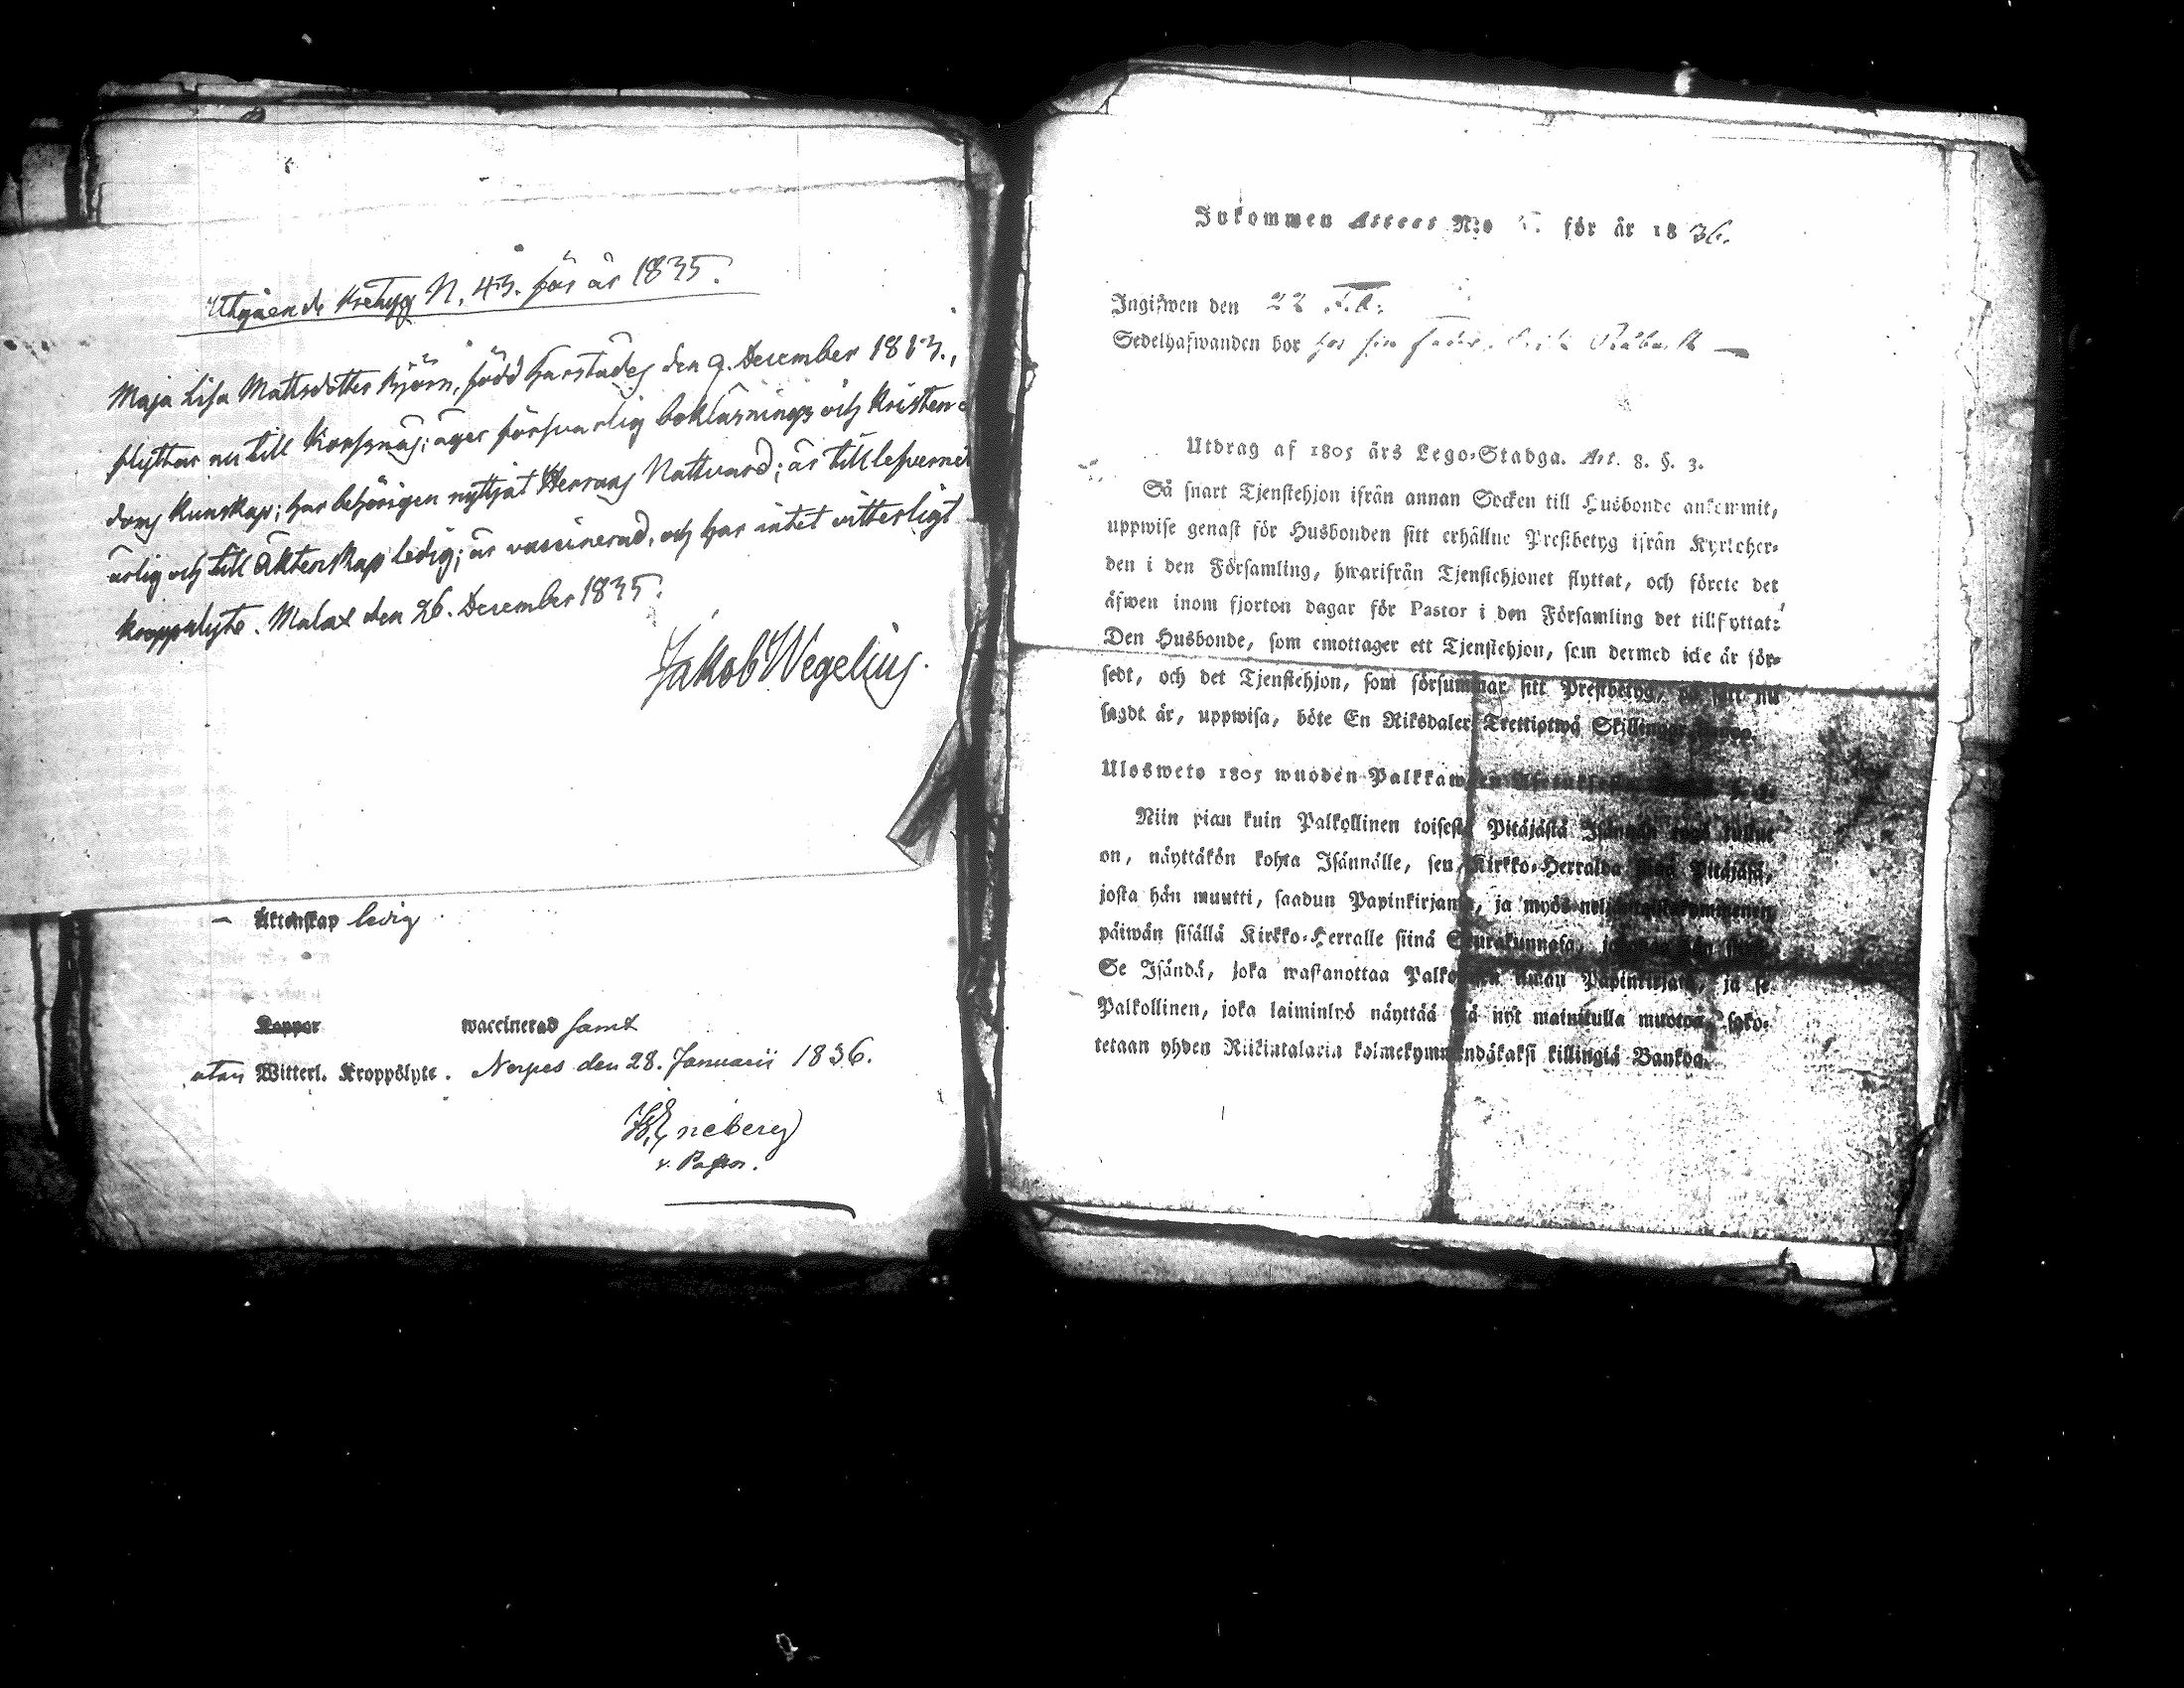 Utgående Betyg N. 43. för år 1835.
Maja Lisa Mattsdotter Björn, född härstädes den 9. December 1813.,
flyttar nu till Korssnäs; äger försvarlig bokläsnings och Kristen-
doms kunskap; har behörigen nyttjat Herrans Nattvard; är till lefvernet
ärlig och till Äktenskap ledig; är vaccinerad, och har intet vitterligt
kroppslyte. Malax den 26. December 1835.
Jakob Wegelius.
— Äktenskap ledig
Koppor waccinerad samt
utan Witterl. Kroppslyte. Nerpes den 28. Januarii 1836.
Lyneberg
v. Pastor.
Inkommen Attest N:o för år 1836.
Ingifwen den 22
Sedelhafwanden bor hos sin
Utdrag af 1805 års Lego-Stadga. Art. 8. §. 3.
Så snart Tjenstehjon ifrån annan Socken till Husbonde ankommit,
uppwise genast för Husbonden sitt erhållne Prestbetyg ifrån Kyrkoher-
den i den Församling, hwarifrån Tjenstehjonet flyttat, och förete det
äfwen inom fjorton dagar för Pastor i den Församling det tillflyttat:
Den Husbonde, som emottager ett Tjenstehjon, som dermed icke är för-
sedt, och det Tjenstehjon, som försummar sitt Prestbetyg, på sätt nu
sagdt är, uppwisa, böte En Riksdaler Trettiotwå Skillingar Banco.
Ulosweto 1805 wuoden Palkkawäen
Niin pian kuin Palkollinen toisesta Pitäjästä Isännän tygö tullut
on, näyttäkön kohta Isännälle, sen Kirkko-Herralda siinä Pitäjäsä,
josta hän muutti, saadun Papinkirjansa, ja myös neljäntoistakymmenen
päiwän sisällä Kirkko-Herralle siinä Seurakunnasa,
Se Isändä, joka wastanottaa Palkollisen ilman Papinkirjata, ja se
Palkollinen, joka laiminlyö näyttää sitä nyt mainitulla muotoa, sako-
tetaan yhden Riikintalarin kolmekymmendäkaksi killingiä Bankoa.